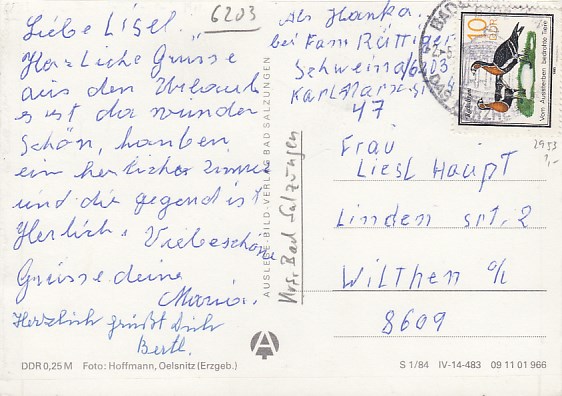 6203
Liebe Lisel
Herzliche Grüsse
aus den Urlaub
es ist da wunder
schön, haben
ein herlicher Zimmer
und die gegend ist
Herlich. Viebeschöne
Grüsse deine
Maria.
Herzlich grüßt Dich
Bertl.
DDR 0,25 M Foto: Hoffmann, Oelsnitz (Erzgeb.)
AUSLESE-BILD-VERLAG BAD SALZUNGEN
Krs. Bad Salzungen
A
Abs Hanka.
bei Fam Rüttiger
Schweina/6203
Karl Marx st
47
BAD
10
DDR
Vom Aussterben bedrohte Tiere
2953
1,-
Frau
Liesl Haupt
Linden srt. 2
Wilthen o/l
8609
S 1/84 IV-14-483 09 11 01 966